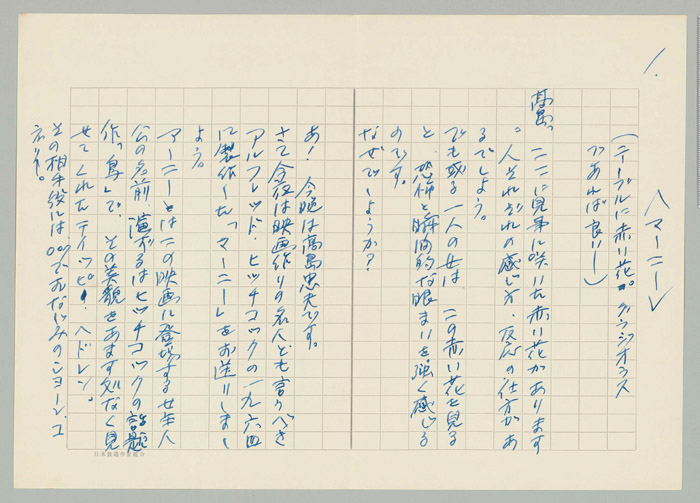 1.
〈マーニー〉
(テーブルに赤い花 グラジオラス
であれば良い―)
高島。ここに見事に咲いた赤い花があります
。人それぞれの感じ方、反応の仕方があ
るでしょう。
でも或る一人の女は、この赤い花を見る
と、恐怖と瞬間的な眼まいを強く感じる
のです。
なぜでしょうか?
あ!今晩は高島忠夫です。
さて今夜は映画作りの名人とも言うべき
アルフレッド・ヒッチコックの一九六四
に製作した「マーニー」をお送りしまし
ょう。
マーニーとはこの映画に登場する女主人
公の名前、演ずるはヒッチコックの話題
作「鳥」で、その美貌をあます処なく見
せてくれたティッピ・ヘドレン。
その相手役には007でおなじみのショーン・コ
ネリー。
日本放送作家組合